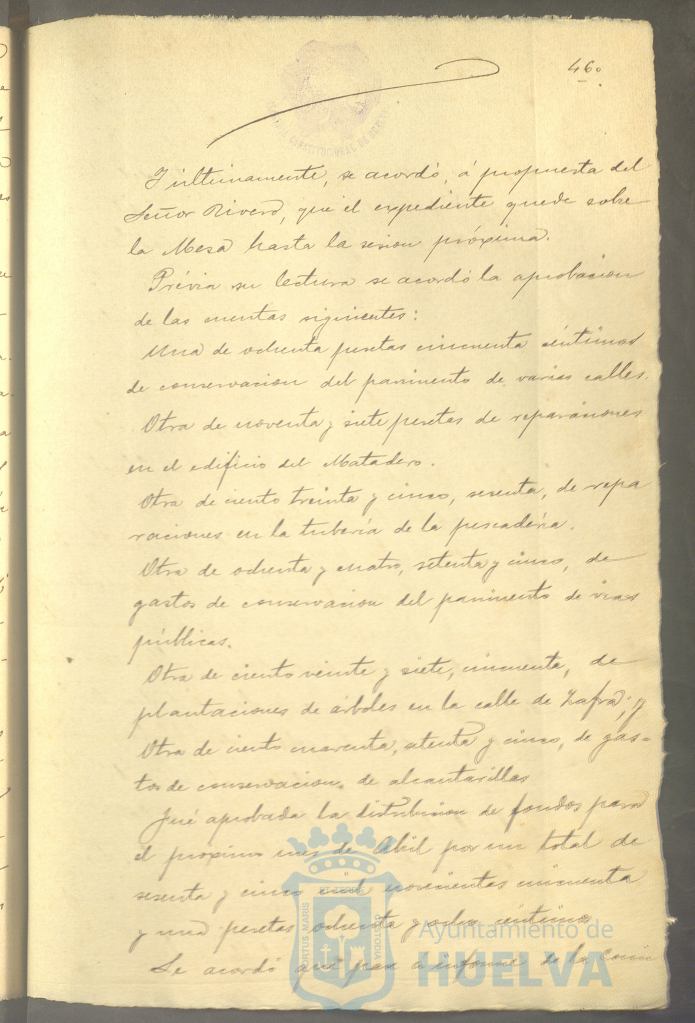 46.
Y ultimamente, se acordó, á propuesta del
Señor Rivero, que el expediente quede sobre
la Mesa hasta la sesion próxima.
Prévia su lectura se acordó la aprobacion
de las cuentas siguientes:
Una de ochenta pesetas cincuenta céntimos
de conservacion del pavimento de varias calles.
Otra de noventa y siete pesetas de reparaciones
en el edificio del Matadero.
Otra de ciento treinta y cinco, sesenta, de repa
raciones en la tuberia de la pescadería.
Otra de ochenta y cuatro, setenta y cinco, de
gastos de conservacion del pavimento de vias
públicas.
Otra de ciento veinte y siete, cincuenta, de
plantaciones de árboles en la calle de Zafra; y
Otra de ciento cuarenta, setenta y cinco, de gas=
tos de conservacion de alcantarillas
Fué aprobada la distribucion de fondos para
el proximo mes de Abril por un total de
sesenta y cinco mil novecientas cincuenta
y una pesetas ochenta y ocho céntimos
Se acordó que pase a informe de la Comi
PORTUS MARIS
CUSTODIA
Ayuntamiento de
HUELVA